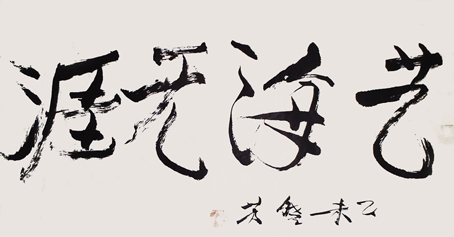 艺海无涯
乙未